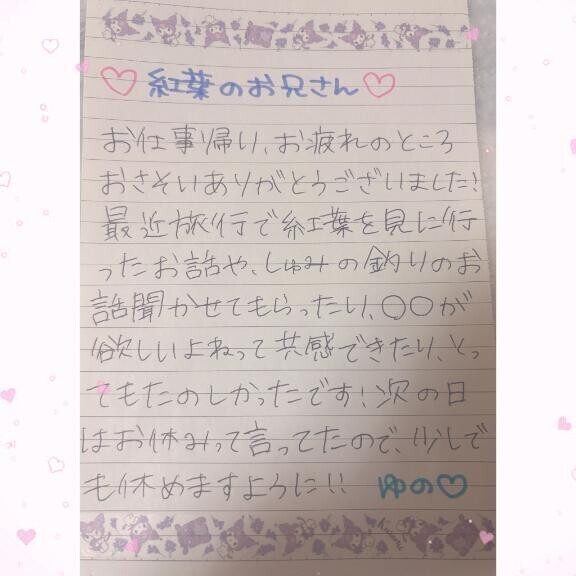 ♡紅葉のお兄さん♡
お仕事帰り、お疲れのところ
おさそいありがとうございました!
最近旅行で紅葉を見に行
ったお話や、しゅみの釣りのお
話聞かせてもらったり、○○が
欲しいよねって共感できたり、とっ
てもたのしかったです!次の日
はお休みって言ってたので、少しで
も休めますように!! ゆの♡